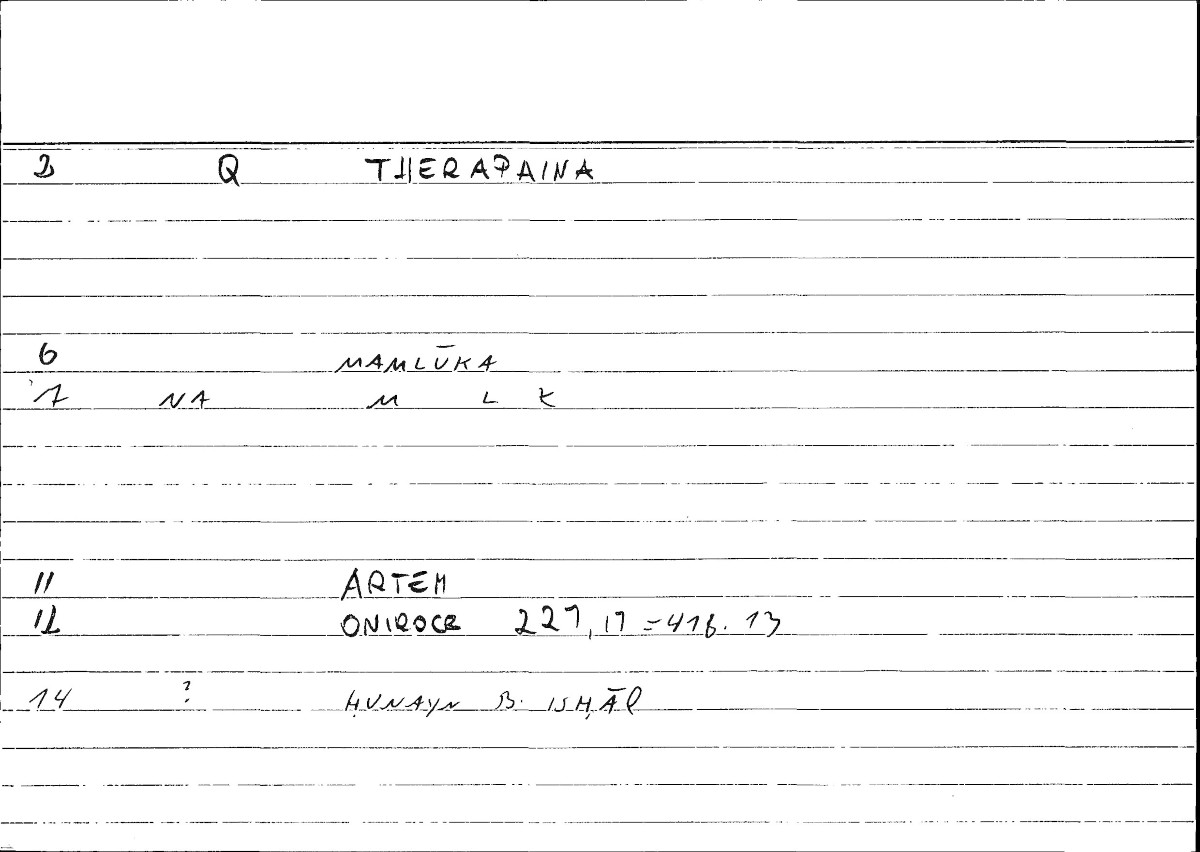 2 Q THERAPAINA
6 MAMLŪKA
7 NA M L K
11 ARTEM
12 ONIROCR 227,17=418.13
14 ? ḤUNAYN B. ISḤĀQ